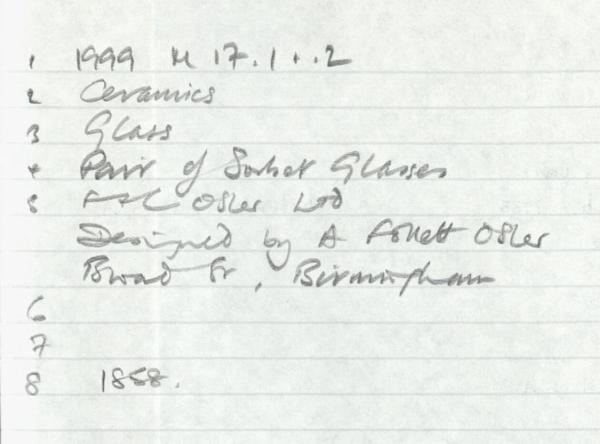 1 1999 M 17.1 + .2
2 Ceramics
3 Glass
4 Pair of Sorbet Glasses
5 F & C Osler Ltd
Designed by A Follett Osler
Broad St, Birmingham
6
7
8 1858.